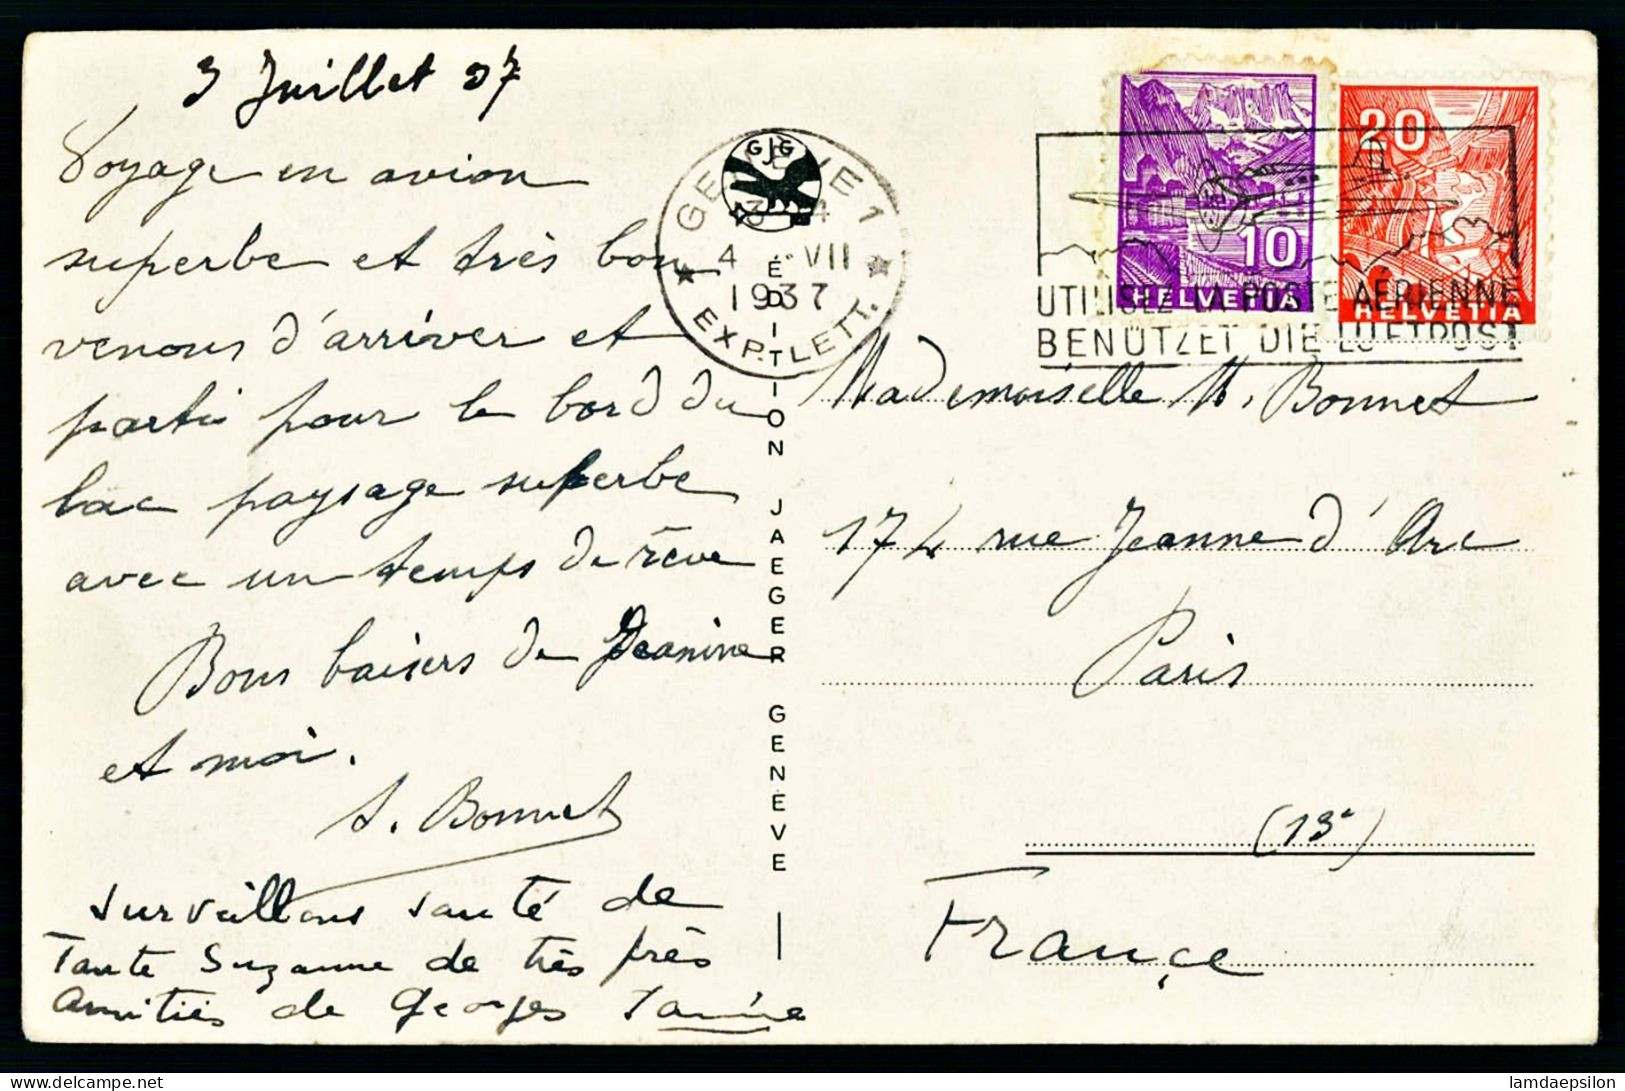 3 Juillet 37
Voyage en avion
superbe et très bon
venons d'arriver et
partis pour le bord du
lac paysage superbe
avec un temps de rêve
Bons baisers de Jeanine
et moi.
S. Bonnet
surveillons santé de
Tante Suzanne de très près
Amitiés de Georges
GJG
GENÈVE 1
4 VII
1937
EXP. LETT.
ÉDITION JAEGER GENÈVE
10
HELVETIA
20
HELVETIA
UTILISEZ LA POSTE AÉRIENNE
BENÜTZET DIE LUFTPOST
Mademoiselle M. Bonnet
174 rue Jeanne d'Arc
Paris
(13e)
France
lamdaepsilon